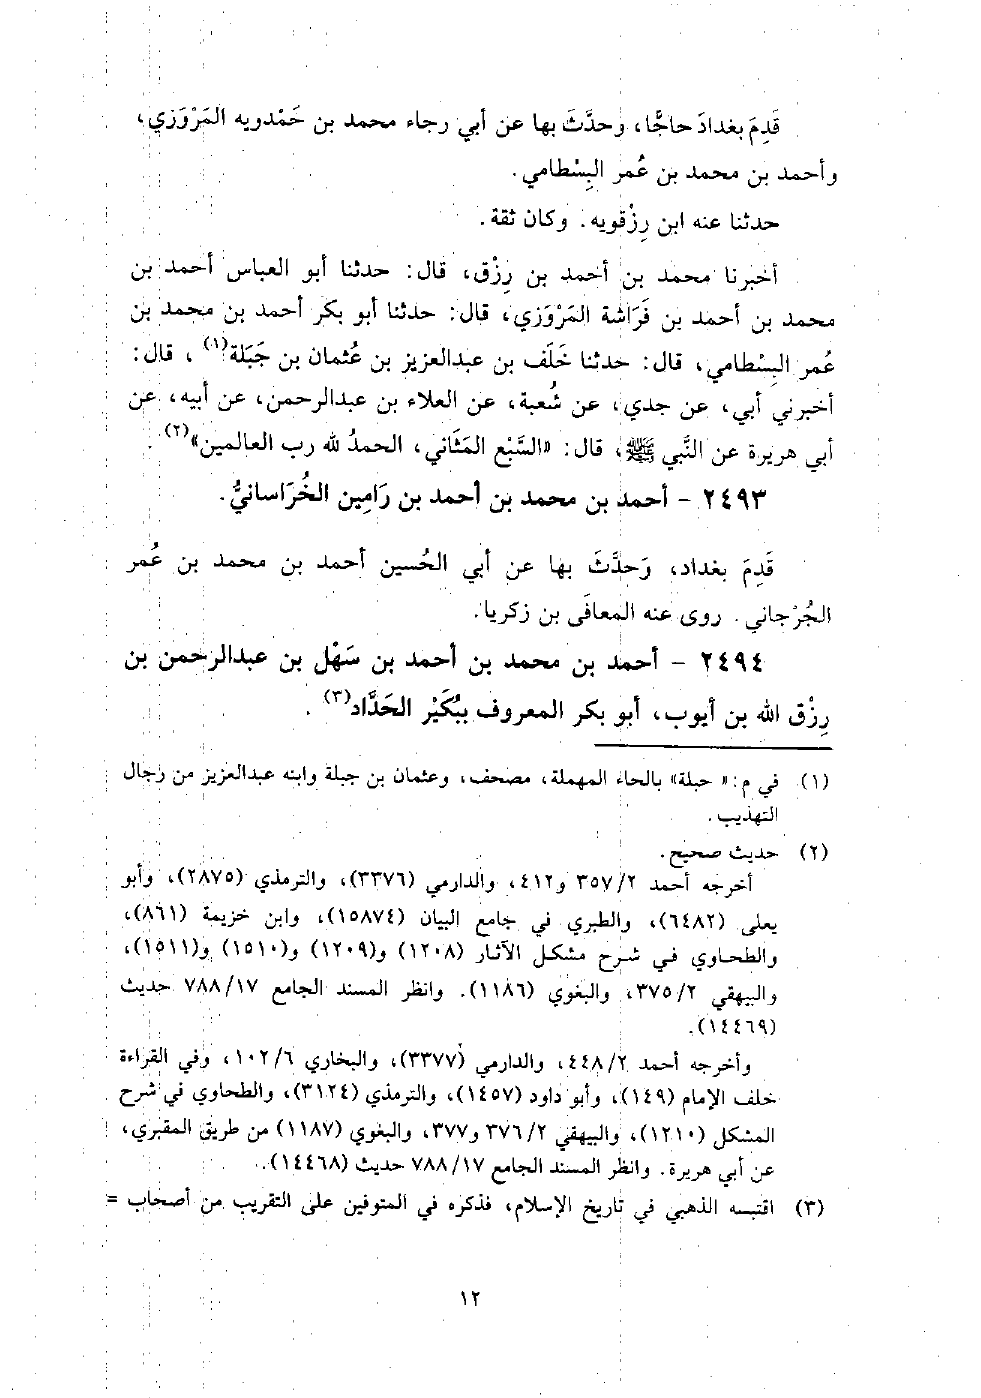 قَدِمَ بغدادَ حاجًّا، وحدَّثَ بها عن أبي رجاء محمد بن حَمْدويه المَرْوَزي،
وأحمد بن محمد بن عُمر البِسْطامي.
حدثنا عنه ابن رِزْقويه. وكان ثقة.
أخبرنا محمد بن أحمد بن رِزْق، قال: حدثنا أبو العباس أحمد بن
محمد بن أحمد بن فَرَاشة المَرْوَزي، قال: حدثنا أبو بكر أحمد بن محمد بن
عُمر البِسْطامي، قال: حدثنا خَلَف بن عبدالعزيز بن عُثمان بن جَبَلة(١)، قال:
أخبرني أبي، عن جدي، عن شُعبة، عن العلاء بن عبدالرحمن، عن أبيه، عن
أبي هريرة عن النَّبي ﷺ، قال: «السَّبْع المَثَاني، الحمدُ لله رب العالمين»(٢).
٢٤٩٣ - أحمد بن محمد بن أحمد بن رَامِين الخُرَاسانيُّ.
قَدِمَ بغداد، وَحدَّثَ بها عن أبي الحُسين أحمد بن محمد بن عُمر
الجُرْجاني. روى عنه المعافَى بن زكريا.
٢٤٩٤ - أحمد بن محمد بن أحمد بن سَهْل بن عبدالرحمن بن
رِزْق الله بن أيوب، أبو بكر المعروف ببُكَيْر الحَدَّاد(٣).
(١) في م: «حبلة» بالحاء المهملة، مصحف، وعثمان بن جبلة وابنه عبدالعزيز من رجال
التهذيب.
(٢) حديث صحيح.
أخرجه أحمد ٢/ ٣٥٧ و٤١٢، والدارمي (٣٣٧٦)، والترمذي (٢٨٧٥)، وأبو
يعلى (٦٤٨٢)، والطبري في جامع البيان (١٥٨٧٤)، وابن خزيمة (٨٦١)،
والطحاوي في شرح مشكل الآثار (١٢٠٨) و(١٢٠٩) و(١٥١٠) و(١٥١١)،
والبيهقي ٢/ ٣٧٥، والبغوي (١١٨٦). وانظر المسند الجامع ١٧/ ٧٨٨ حديث
(١٤٤٦٩).
وأخرجه أحمد ٢/ ٤٤٨، والدارمي (٣٣٧٧)، والبخاري ٦/ ١٠٢، وفي القراءة
خلف الإمام (١٤٩)، وأبو داود (١٤٥٧)، والترمذي (٣١٢٤)، والطحاوي في شرح
المشكل (١٢١٠)، والبيهقي ٢/ ٣٧٦ و٣٧٧، والبغوي (١١٨٧) من طريق المقبري،
عن أبي هريرة. وانظر المسند الجامع ١٧/ ٧٨٨ حديث (١٤٤٦٨).
(٣) اقتبسه الذهبي في تاريخ الإسلام، فذكره في المتوفين على التقريب من أصحاب =
١٢